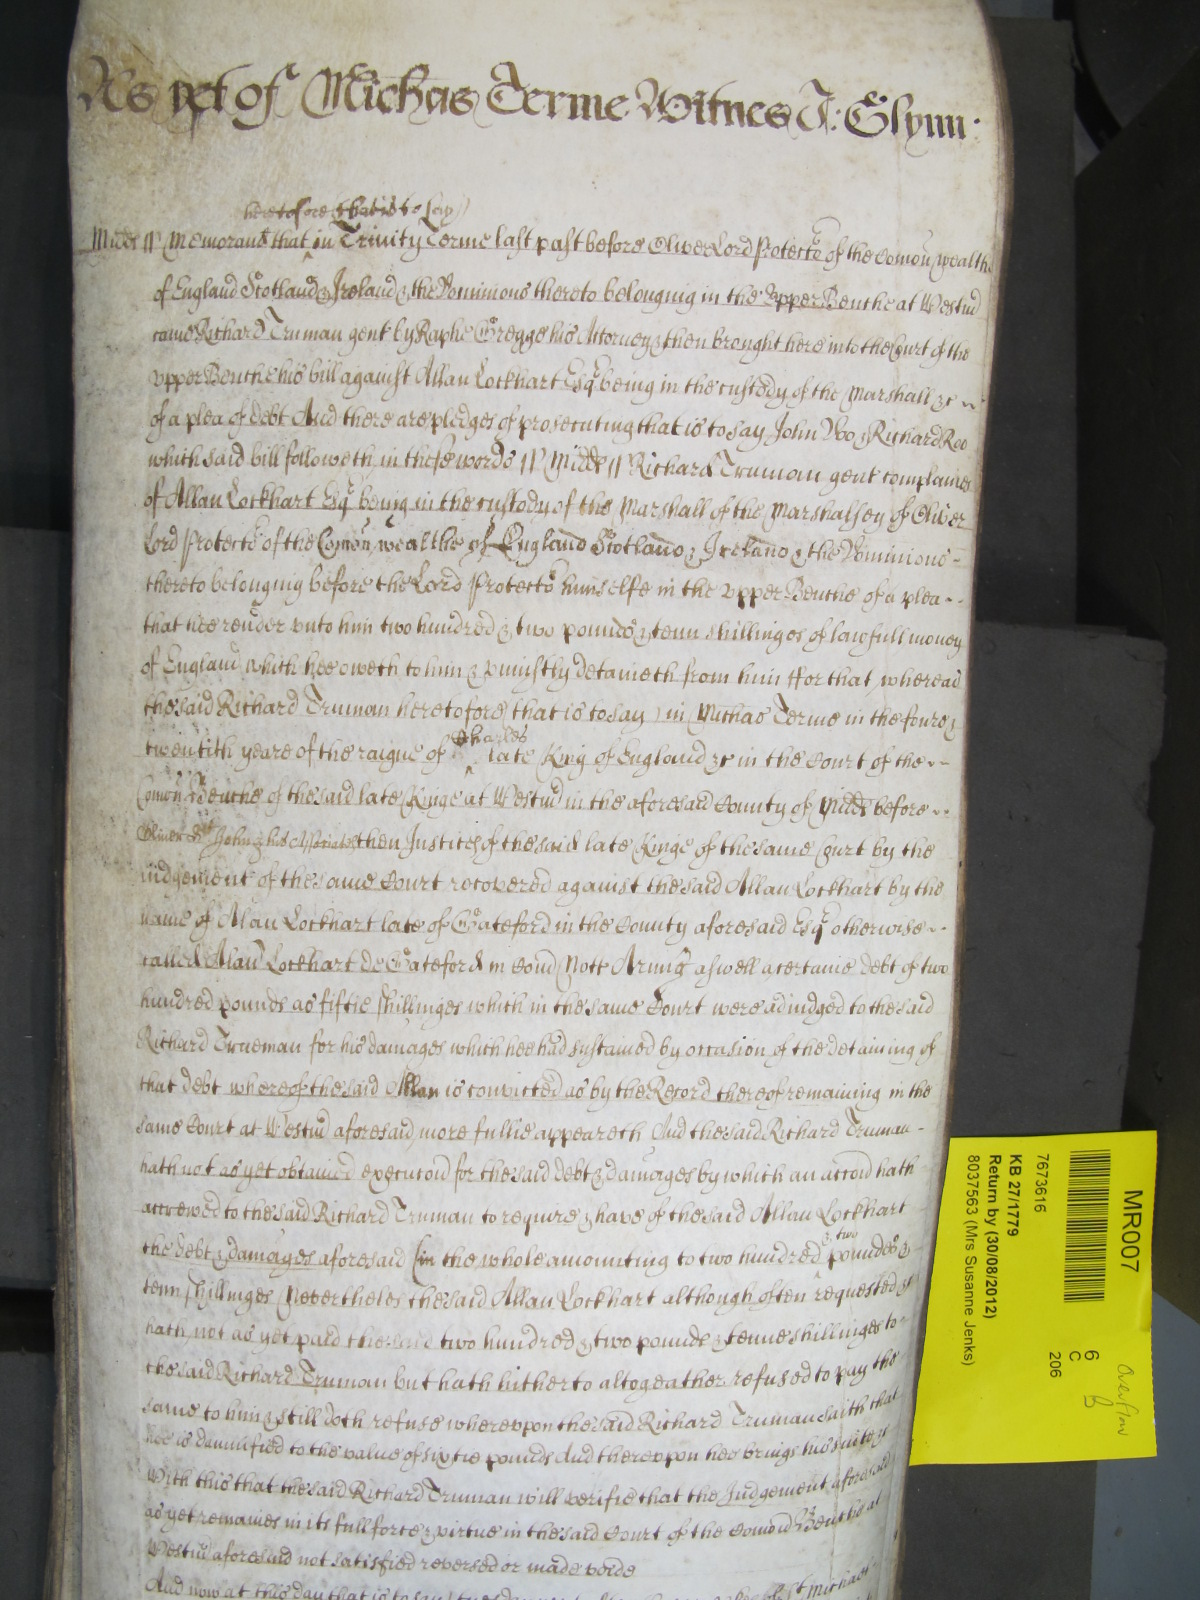 As yet of Michas Terme Witnes J: Glynn
heretofore that is to say)
Midds // Memorand that in Trinity Terme last past before Oliver Lord Protector of the Comon wealthe
of England Scotland & Ireland & the Dominions thereto belonginig in the upper Benche at Westm
came Richard Truman gent by Raphe Gregge his Attorney & then brought here into the Court of the
upper Benche his bill against Allan Lockhart Esqr being in the custody of the Marshall &c
of a plea of debt And there are pledges of prosecuting that is to say John Doo & Richard Roo
which said bill followeth in these words // Midds // Richard Truman gent complaines
of Allan Lockhart Esqr being in the custody of the Marshall of the Marshalsey of Oliver
Lord Protector of the Comon wealthe of England Scotland & Ireland & the Dominions
thereto belonging before the Lord Protector himselfe in the upper Benche of a plea
that hee render unto him two hundred & two pounds & tenn shillinges of lawfull money
of England which hee oweth to him & uniustly detaineth from him ffor that whereas
the said Richard Truman heretofore that is to say) in Michas Terme in the foure &
twentith yeare of the raigne of Charles late King of England &c in the Court of the
Comon Benche of the said late Kinge at Westm in the aforesaid County of Midds before
Oliver St John & his then Justices of the said late Kinge of the same Court by the
iudgement of the same Court recovered against the said Allan Lockhart by the
name of Alan Lockhart late of Gateford in the County aforesaid Esqr otherwise
called Alan Lockhart de Gateford in Com Nott Armig aswell a certaine debt of two
hundred pounds as fiftie shillinges which in the same Court were adiudged to the said
Richard Trueman for his damages which hee had sustained by occasion of the detaining of
that debt whereof the said Allan is convicted as by the Record thereof remaining in the
same Court at Westm aforesaid more fullie appeareth And the said Richard Truman
hath not as yet obtained execucon for the said debt & damages by which an accon hath
accrewed to the said Richard Truman to require & have of the said Allan Lockhart
the debt & damages aforesaid in the whole amounting to two hundred & two pounds &
tenn shillinges Nevertheles the said Allan Lockhart although often requested &c
hath not as yet paid the said two hundred & two pounds & tenne shillinges to
the said Richard Truman but hath hitherto altogeather refused to pay the
same to him & still doth refuse whereupon the said Richard Truman saith that
hee is damnified to the value of sixtie pounds And thereupon hee brings his suite &c
With this that the said Richard Truman will verifie that the Judgement aforesaid
as yet remaines in its full force & virtue in the said Court of the Comon Benche at
Westm aforesaid not satisfied reversed or made voide
And now at this day that is to say
MR007
7673616
KB 27/1779
Return by (30/08/2012)
8037563 (Mrs Susanne Jenks)
6
C
206
Overflow
B